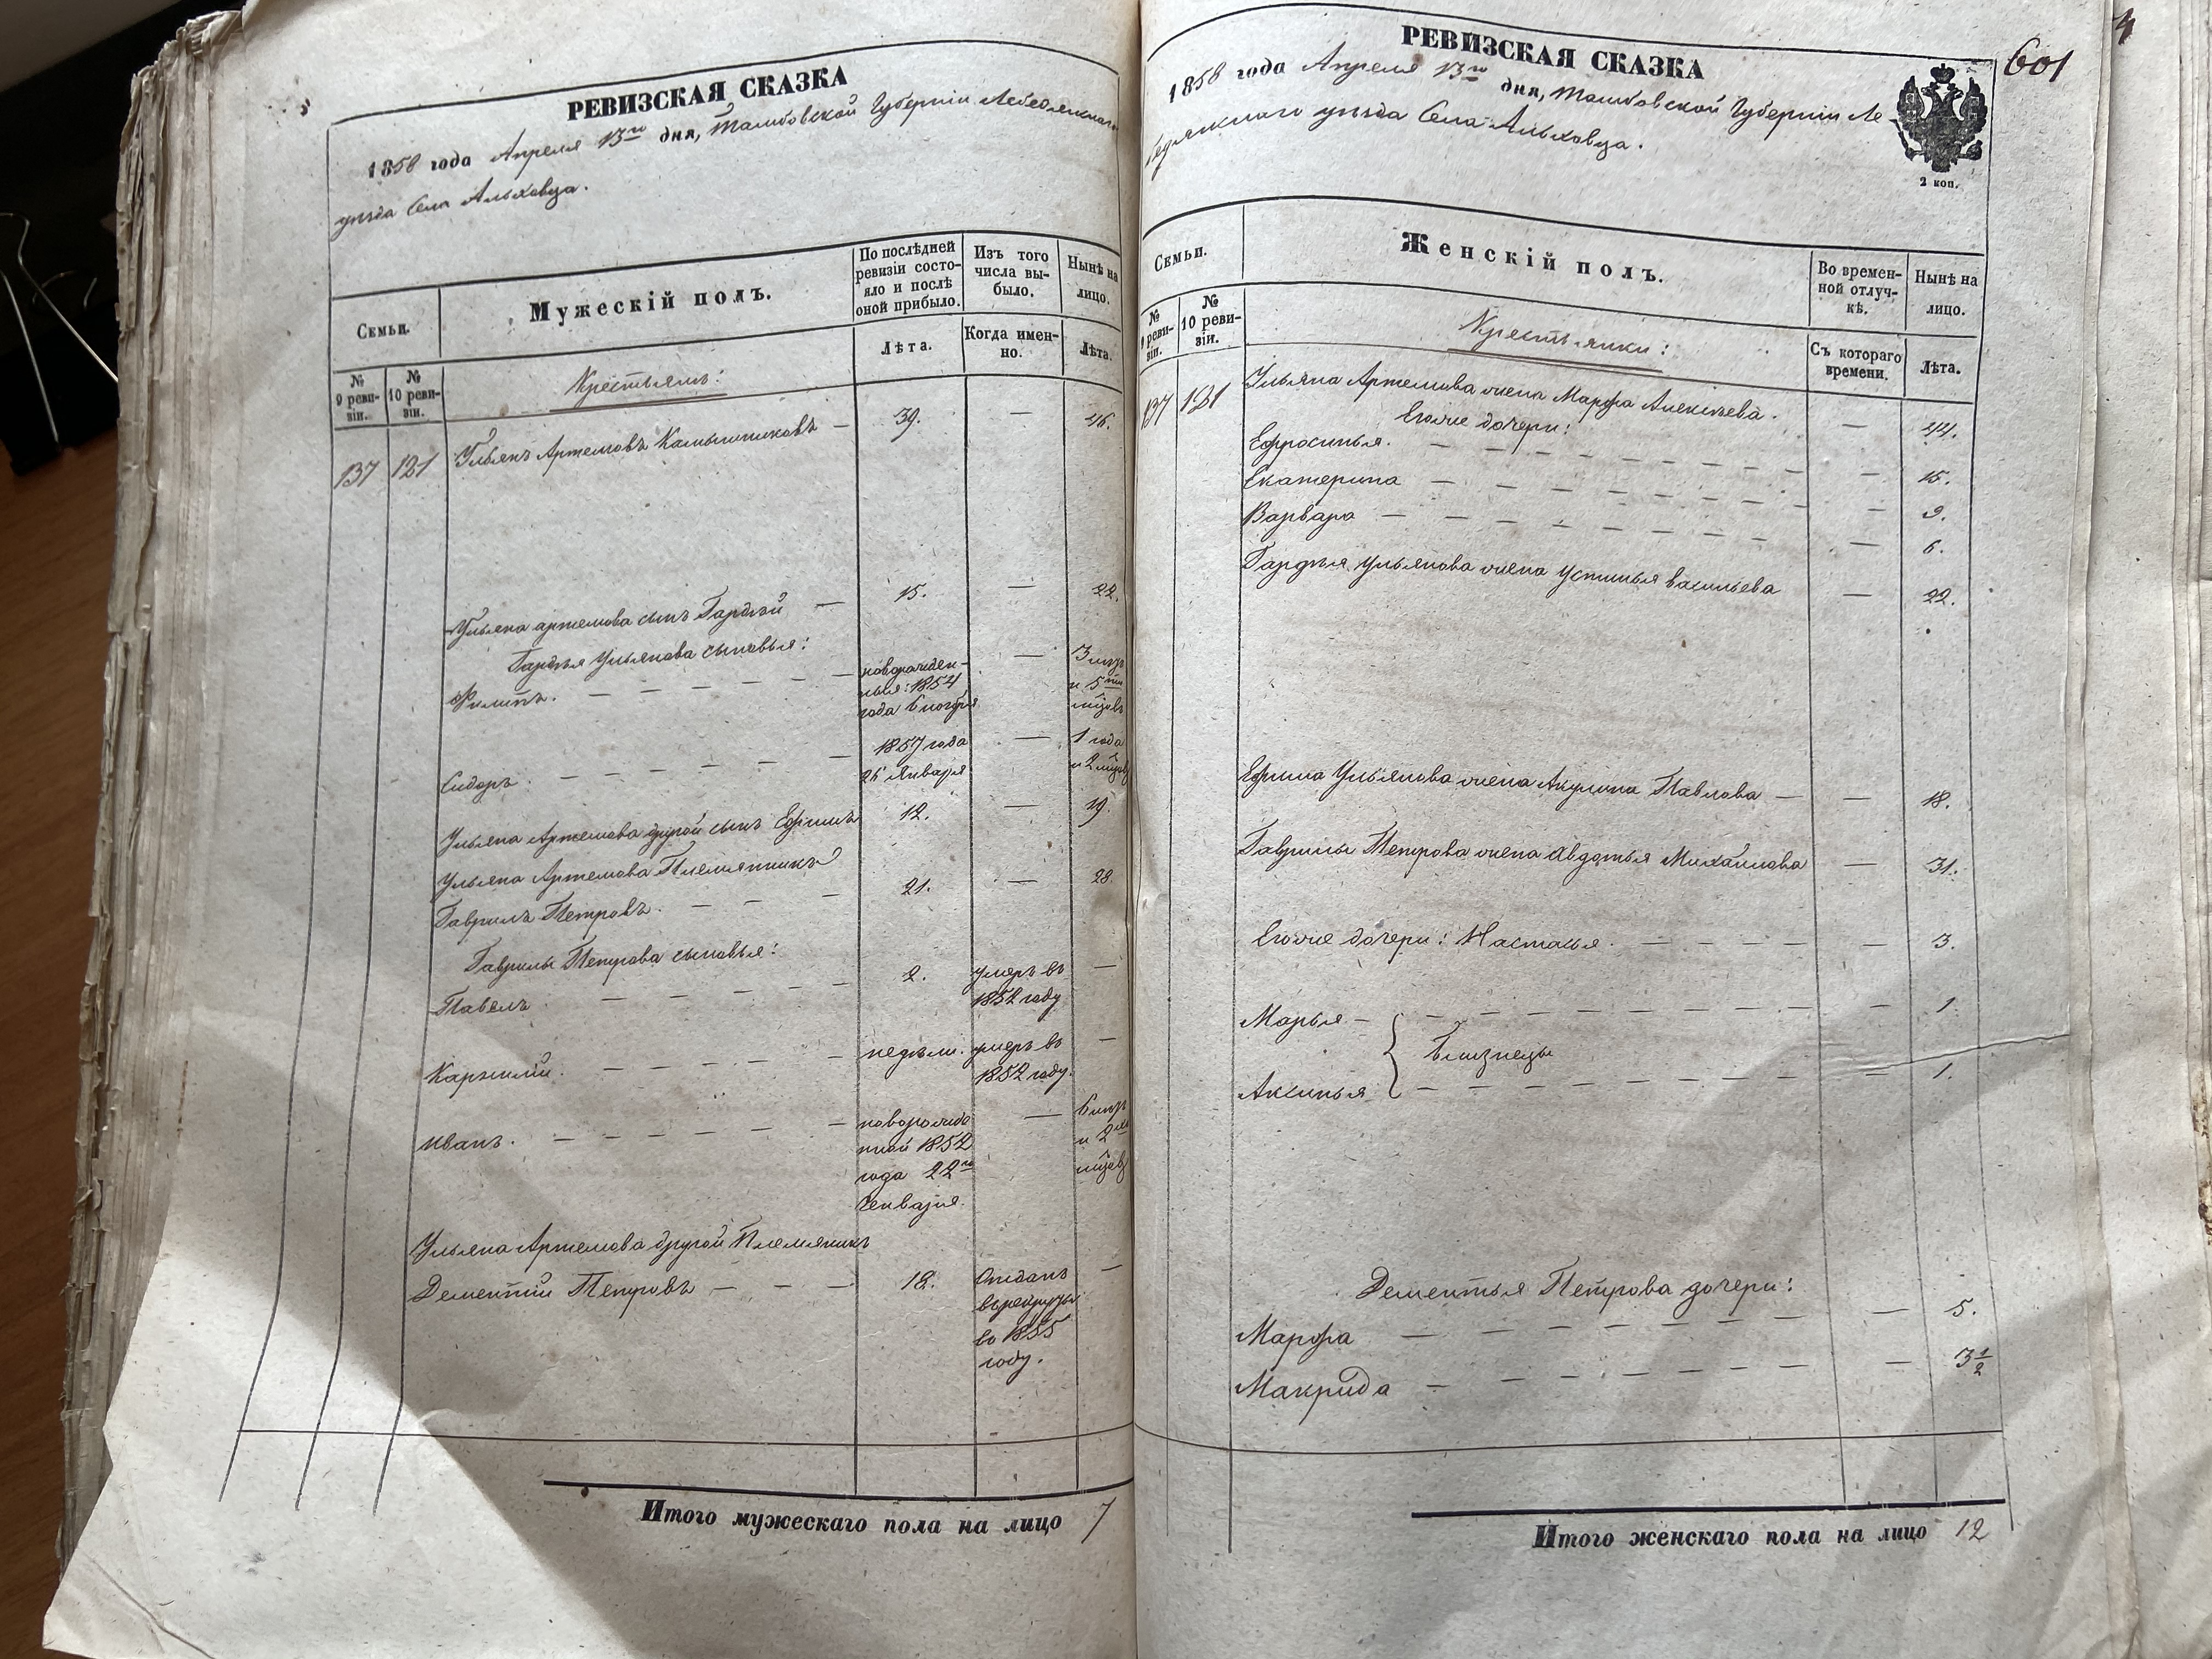 РЕВИЗСКАЯ СКАЗКА
1858 года Апреля 13го дня, Тамбовской Губернiи Лебедянскаго
уѣзда Села Ольховца.
Семьи.
Мужескiй полъ.
По послѣдней ревизiи состо-
яло и послѣ
оной прибыло.
Изъ того
числа вы-
было.
Нынѣ на
лицо.
№
9 реви-
зiи.
№
10 реви-
зiи.
Лѣта.
Когда имен-
но.
Лѣта.
Крестьяне:
137 121 Ульянъ Артемовъ Камышниковъ — 39. — 46.
Ульяна артемова сынъ Гордѣй — 15. — 22.
Гордѣя Ульянова сыновья:
Филипъ. — новорожден-
ныя: 1854
года 6 ноября — 3 лѣтъ
и 5ти
мѣсяцовъ
Сидоръ. — 1857 года
26 Января — 1 года
и 2 мѣсяцовъ
Ульяна Артемова другой сынъ Ефимъ 12. — 19.
Ульяна Артемова Племянникъ
Гаврилъ Петровъ. — 21. — 28.
Гаврилы Петрова сыновья:
Павелъ — 2. умеръ въ
1852 году —
недѣли. умеръ въ
1852 году. —
Иванъ. — новорожде
ный 1852
года 22го
Генваря. — 6 лѣтъ
и 2хъ
мѣсяцовъ
Ульяна Артемова другой Племяникъ
Дементiй Петровъ — 18. Отданъ
въ рекруты
въ 1855
году. —
Итого мужескаго пола на лицо 7
601
РЕВИЗСКАЯ СКАЗКА
1858 года Апреля 13го дня, Тамбовской Губернiи Ле
бедянскаго уѣзда Села Ольховца.
2 коп.
Семьи.
Женскiй полъ.
Во времен-
ной отлуч-
кѣ.
Нынѣ на
лицо.
№
9 реви-
зiи.
№
10 реви-
зiи.
Съ котораго
времени.
Лѣта.
Крестьянки:
137 121 Ульяна Артемова жена Марфа Алексѣева. — 44.
Егоже дочери:
Ефросинья. — 15.
Екатерина — 9.
Варвара — 6.
Гордѣя Ульянова жена Устинья васильева — 22.
Ефима Ульянова жена Акулина Павлова — 18.
Гаврилы Петрова жена Авдотья Михайлова — 31.
Егоже дочери: Настасья. — 3.
Марья — 1.
Близнецы
Аксинья — 1.
Дементья Петрова дочери:
Марфа — 5.
Макрида — 3½
Итого женскаго пола на лицо 12